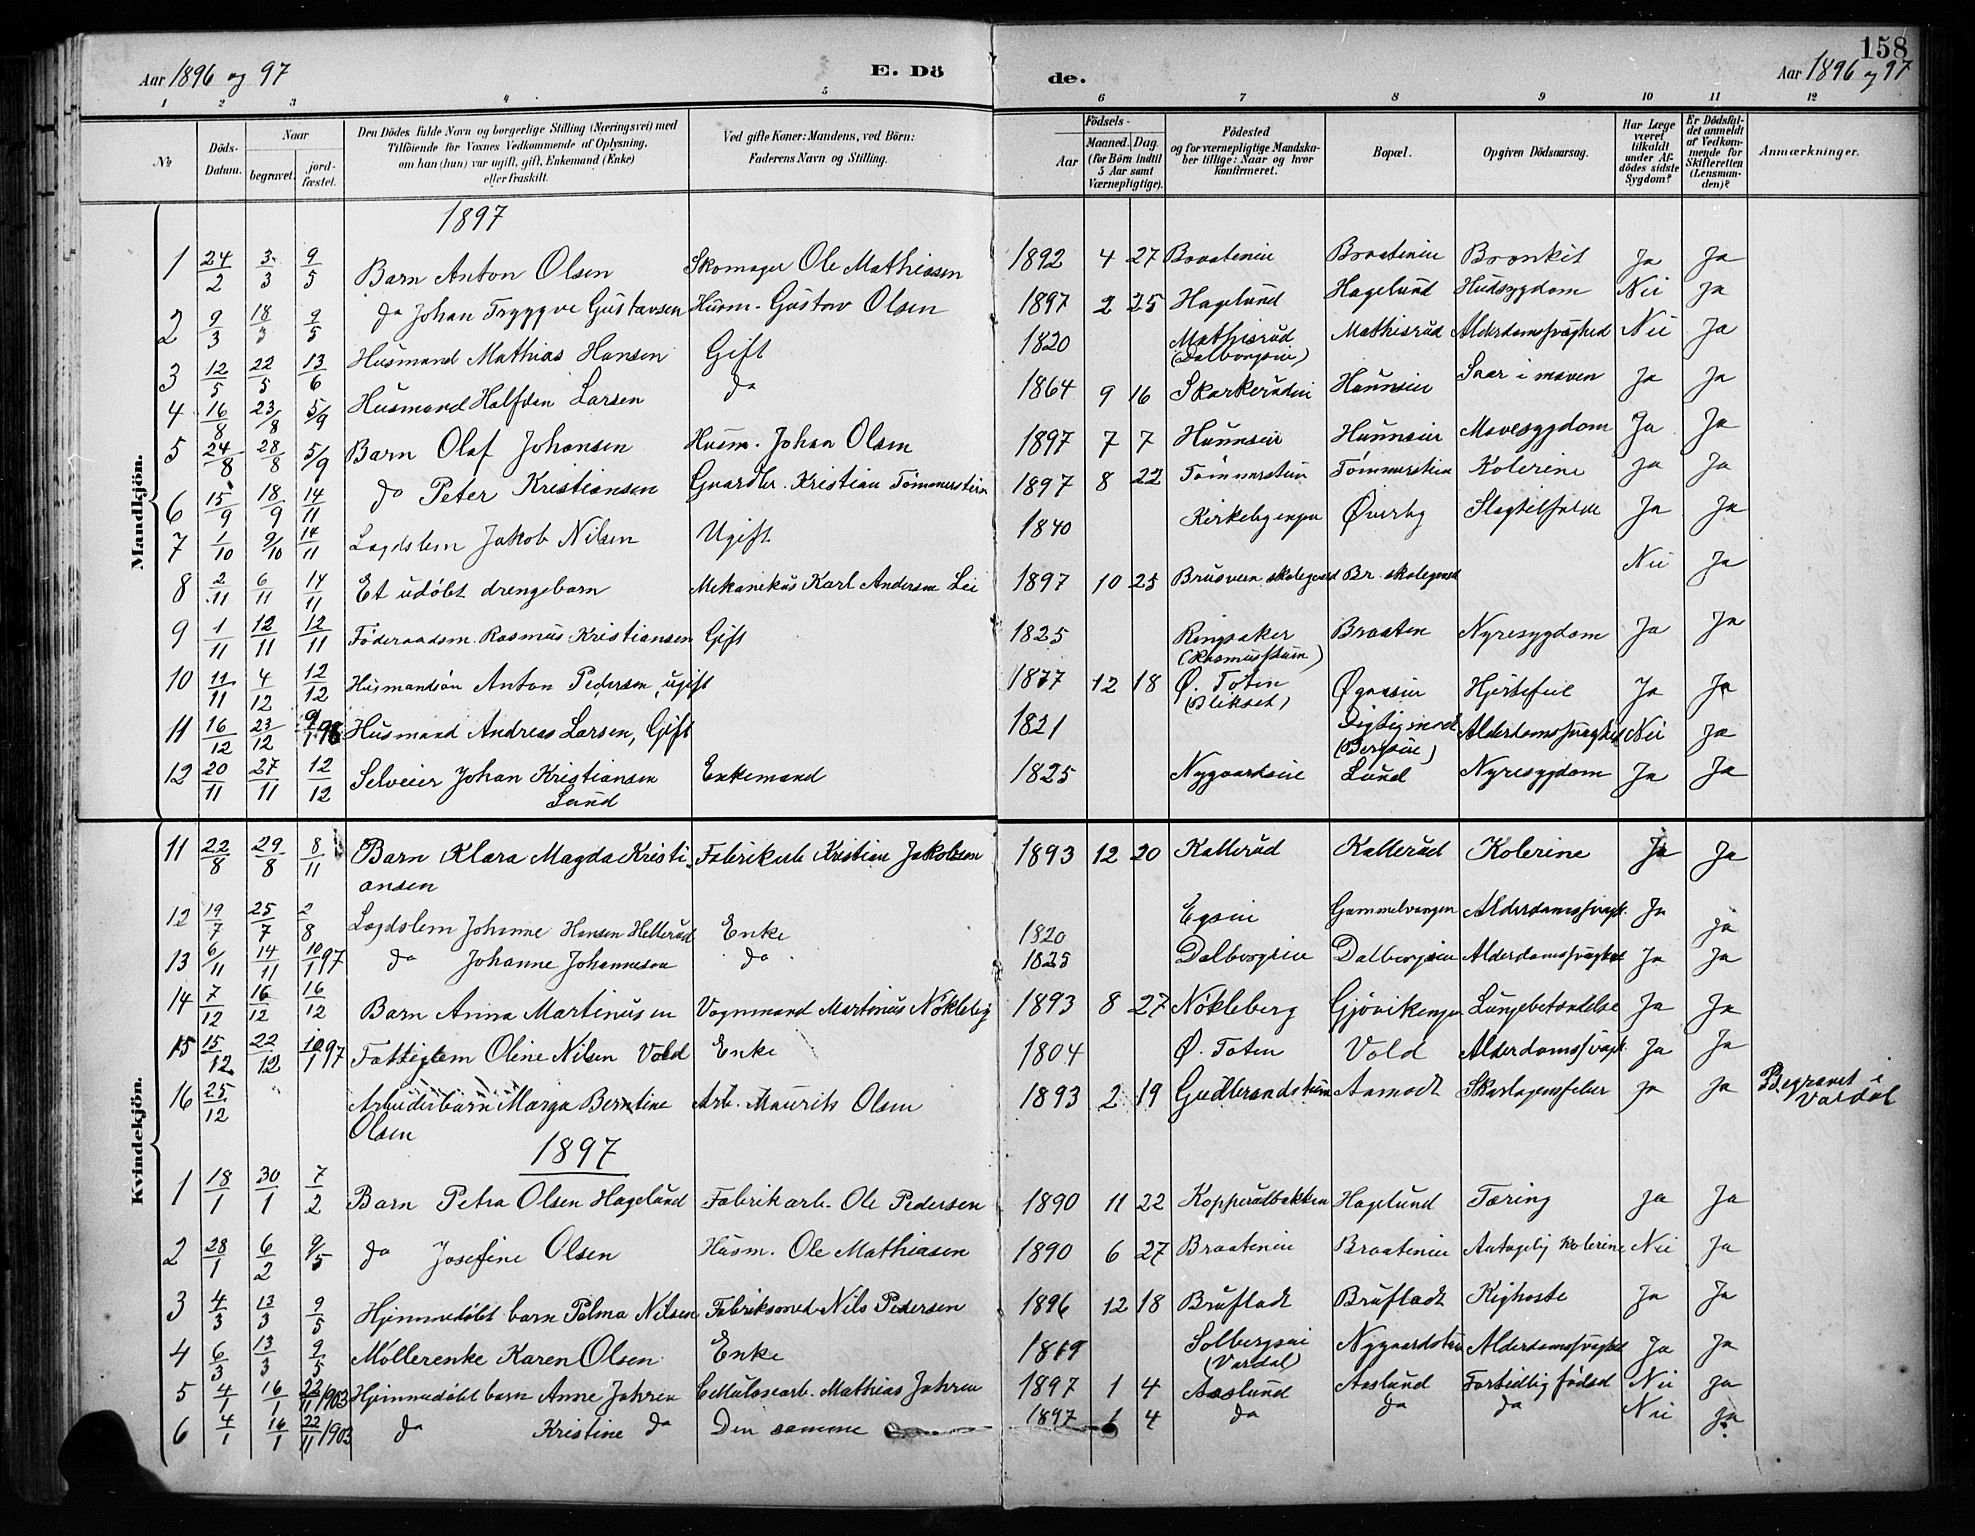 Aar 1896 og 97 E. Dö de. Aar 1896 og 97 158
1 2 3 4 5 6 7 8 9 10 11 12
№ Döds-Datum. Naar begravet. jord-fæstet. Den Dödes fulde Navn og borgerlige Stilling (Næringsvei) med Tilföiende for Voxnes Vedkommende af Oplysning, om han (hun) var ugift, gift, Enkemand (Enke) eller fraskilt. Ved gifte Koner: Mandens, ved Börn: Faderens Navn og Stilling. Födsels- Aar Maaned. Dag. (for Börn indtil 5 Aar samt Værnepligtige). Födested og for værnepligtige Mandska-ber tillige: Naar og hvor konfirmeret. Bopæl. Opgiven Dödsaarsag. Har Læge været tilkaldt under Af-dödes sidste Sygdom? Er Dödsfal-det anmeldt af Vedkom-mende for Skifteretten (Lensman-den)? Anmærkninger.
Mandkjön.
1897
1 24/2 3/3 9/5 Barn Anton Olsen Skomager Ole Mathiassen 1892 4 27 Braateneie Braateneie Bronkit Ja Ja
2 9/3 18/3 9/5 do Johan Tryggve Gustavsen Husm. Gustav Olsen 1897 2 25 Hagelund Hagelund Hudsygdom Nei Ja
3 12/5 22/5 13/6 Husmand Mathias Hansen Gift 1820 Mathisrud (Dalborgeie) Mathisrud Alderdomssvaghed Nei Ja
4 16/8 23/8 5/9 Husmand Halfdan Larsen do 1864 9 16 Skarkerudeie Hunnseie Saar i maven Ja Ja
5 24/8 28/8 5/9 Barn Olaf Johansen Husm. Johan Olsen 1897 7 7 Hunnseie Hunnseie Mavesygdom Ja Ja
6 15/9 18/9 14/11 do Peter Kristiansen Gaardbr. Kristian Tømmerstein 1897 8 22 Tømmerstein Tømmerstein Kolerine Ja Ja
7 1/10 9/10 14/11 Lægdslem Jakob Nilsen Ugift 1840 Kirkebyengen Øverby Slagtilfælde Ja Ja
8 2/11 6/11 14/11 Et udøbt drengebarn Mekanikus Karl Andersen Lei 1897 10 25 Brusveen skolegaard Br. skolegaard Nei Ja
9 1/11 12/11 12/11 Føderaadsm. Rasmus Kristiansen Gift 1825 Ringsaker (Rasmusstuen) Braaten Nyresygdom Ja Ja
10 11/11 4/12 12/12 Husmandssøn Anton Pedersen, ugift 1877 12 18 Ø. Toten (Blikset) Øgaseie Hjertefeil Ja Ja
11 16/12 23/12 9/1 98 Husmand Andreas Larsen, Gift 1821 (Bergseie) Alderdomssvaghed Nei Ja
12 20/11 27/11 12/12 Selveier Johan Kristiansen Lund Enkemand 1825 Nygaardseie Lund Nyresygdom Ja Ja
Kvindekjön.
11 22/8 29/8 8/11 Barn Klara Magda Kristi-ansen Fabrikarb Kristian Jakobsen 1893 12 20 Kallerud Kallerud Kolerine Ja Ja
12 19/7 25/7 2/8 Lægdslem Johanne Hansen Hellerud Enke 1820 Egseie Gammelvangen Alderdomssvagh. Ja Ja
13 6/11 14/11 10/1 97 do Johanne Johannesen do 1825 Dalborgseie Dalborgseie Alderdomssvaghed Ja Ja
14 7/12 16/12 16/12 Barn Anna Martinusen Vognmand Martinus Nøkleby 1893 8 27 Nøkleberg Gjøvikengen Lungebetændelse Ja Ja
15 15/12 22/12 10/1 97 Fattiglem Oline Nilsen Vold Enke 1804 Ø. Toten Vold Alderdomssvagh. Ja Ja
16 25/12 Arbeiderbarn Marga Berntine Olsen Arb. Maurits Olsen 1893 2 19 Gudbrandstuen Aamodt Skarlagensfeber Ja Ja Begravet i Vardal
1897
1 18/1 30/1 7/2 Barn Petra Olsen Hagelund Fabrikarb. Ole Pedersen 1890 11 22 Kopperudbakken Hagelund Tæring Ja Ja
2 28/1 6/2 9/5 do Josefine Olsen Husm. Ole Mathiasen 1890 6 27 Braateneie Braateneie Antagelig kolerine Nei Ja
3 4/3 13/3 9/5 Hjemmedøbt barn Palma Nilsen Fabriksmed Nils Pedersen 1896 12 18 Brufladt Brufladt Kighoste Ja Ja
4 6/3 13/3 9/5 Møllerenke Karen Olsen Enke 1819 Solbergseie (Vardal) Nygaardstuen Alderdomssvaghed Ja Ja
5 4/1 16/1 22/11 1903 Hjemmedøbt barn Anne Jahren Cellulosearb. Mathias Jahren 1897 1 4 Aaslund Aaslund Fortidlig fødsel Nei Ja
6 4/1 16/1 22/11 1903 do Kristine do Den samme 1897 1 4 do do do Nei Ja